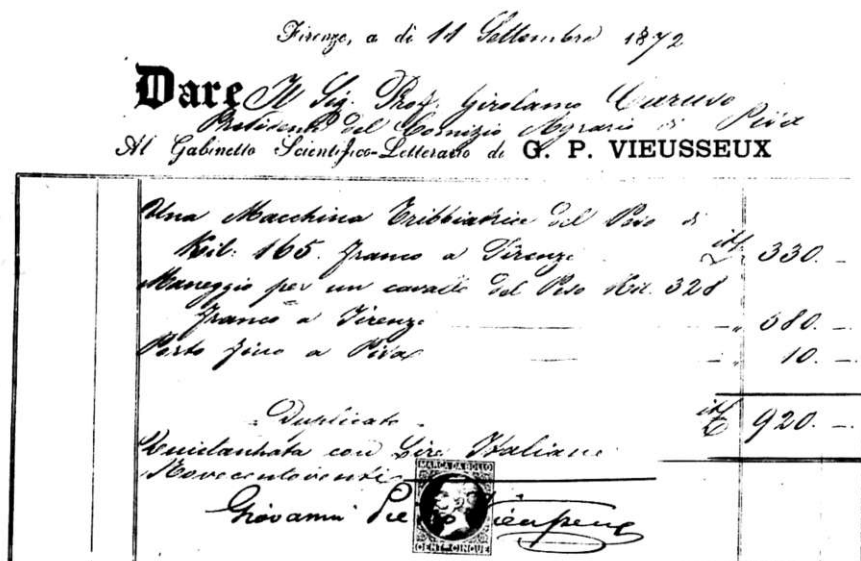 Firenze, a dì 11 Settembre 1872
Dare Il Sig. Prof. Girolamo Caruso
Presidente del Comizio Agrario di Pisa
Al Gabinetto Scientifico-Letterario di G. P. VIEUSSEUX
Una Macchina Trebbiatrice del Peso di
Kil: 165. franco a Firenze it£ 330. -
Maneggio per un cavallo del Peso Kil. 328
franco a Firenze - " 580. -
Porto fino a Pisa - " 10. -
Duplicato it£ 920. -
Quietanzata con Lire Italiane
Novecentoventi
Giovanni Pietro Vieusseux
MARCA DA BOLLO
CENT. CINQUE